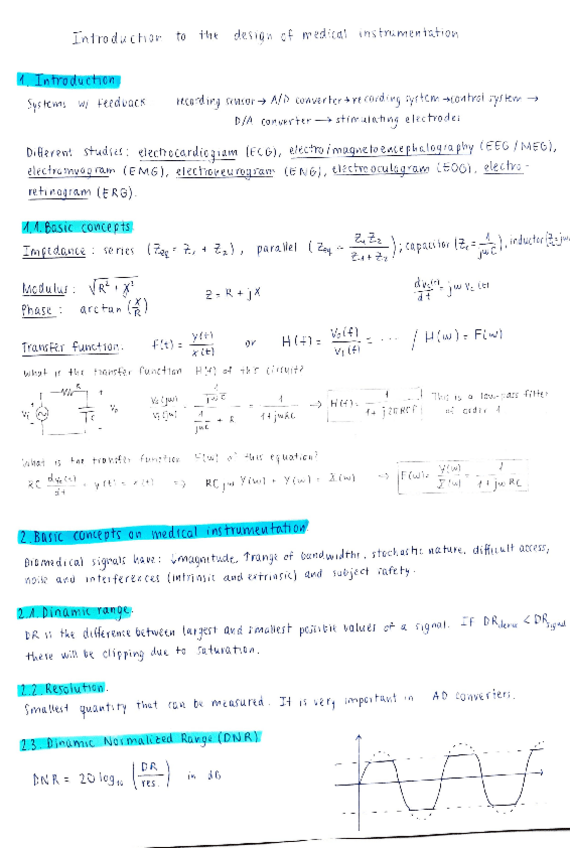 Introduction to the design of medical instrumentation
1. Introduction
Systems w/ feedback recording sensor → A/D converter → recording system → control system →
D/A converter → stimulating electrodes
Different studies: electrocardiogram (ECG), electro/magnetoencephalography (EEG/MEG),
electromyogram (EMG), electroneurogram (ENG), electrooculogram (EOG), electro-
retinogram (ERG).
1.1. Basic concepts
Impedance: series (Zeq = Z1 + Z2), parallel (Zeq = Z1Z2/Z1+Z2); capacitor (Zc = 1/jωC), inductor (Z=jω
Modulus: √R² + X² Z = R + jX
Phase: arctan (X/R)
Transfer function: f(t) = y(t)/x(t) or H(f) = V0(f)/V1(f) = ... / H(ω) = F(ω)
What is the transfer function H(f) of this circuit?
R
C
V0(jω)/Vi(jω) = 1/jωC / 1/jωC + R = 1/1+jωRC → H(f) = 1/1+j2πRCf This is a low-pass filter
of order 1
What is the transfer function F(ω) of this equation?
RC + y(t) = x(t) ⇒ RCjω Y(ω) + Y(ω) = X(ω) ⇒ F(ω) = Y(ω)/X(ω) = 1/1+jωRC
2. Basic concepts on medical instrumentation
Biomedical signals have: ↓magnitude, ↑range of bandwidths, stochastic nature, difficult access,
noise and interferences (intrinsic and extrinsic) and subject safety.
2.1. Dinamic range.
DR is the difference between largest and smallest possible values of a signal. If DRdevice < DRsignal
there will be clipping due to saturation.
2.2. Resolution.
Smallest quantity that can be measured. It is very important in AD converters.
2.3. Dinamic Normalized Range (DNR)
DNR = 20 log10 (DR/res.) in dB